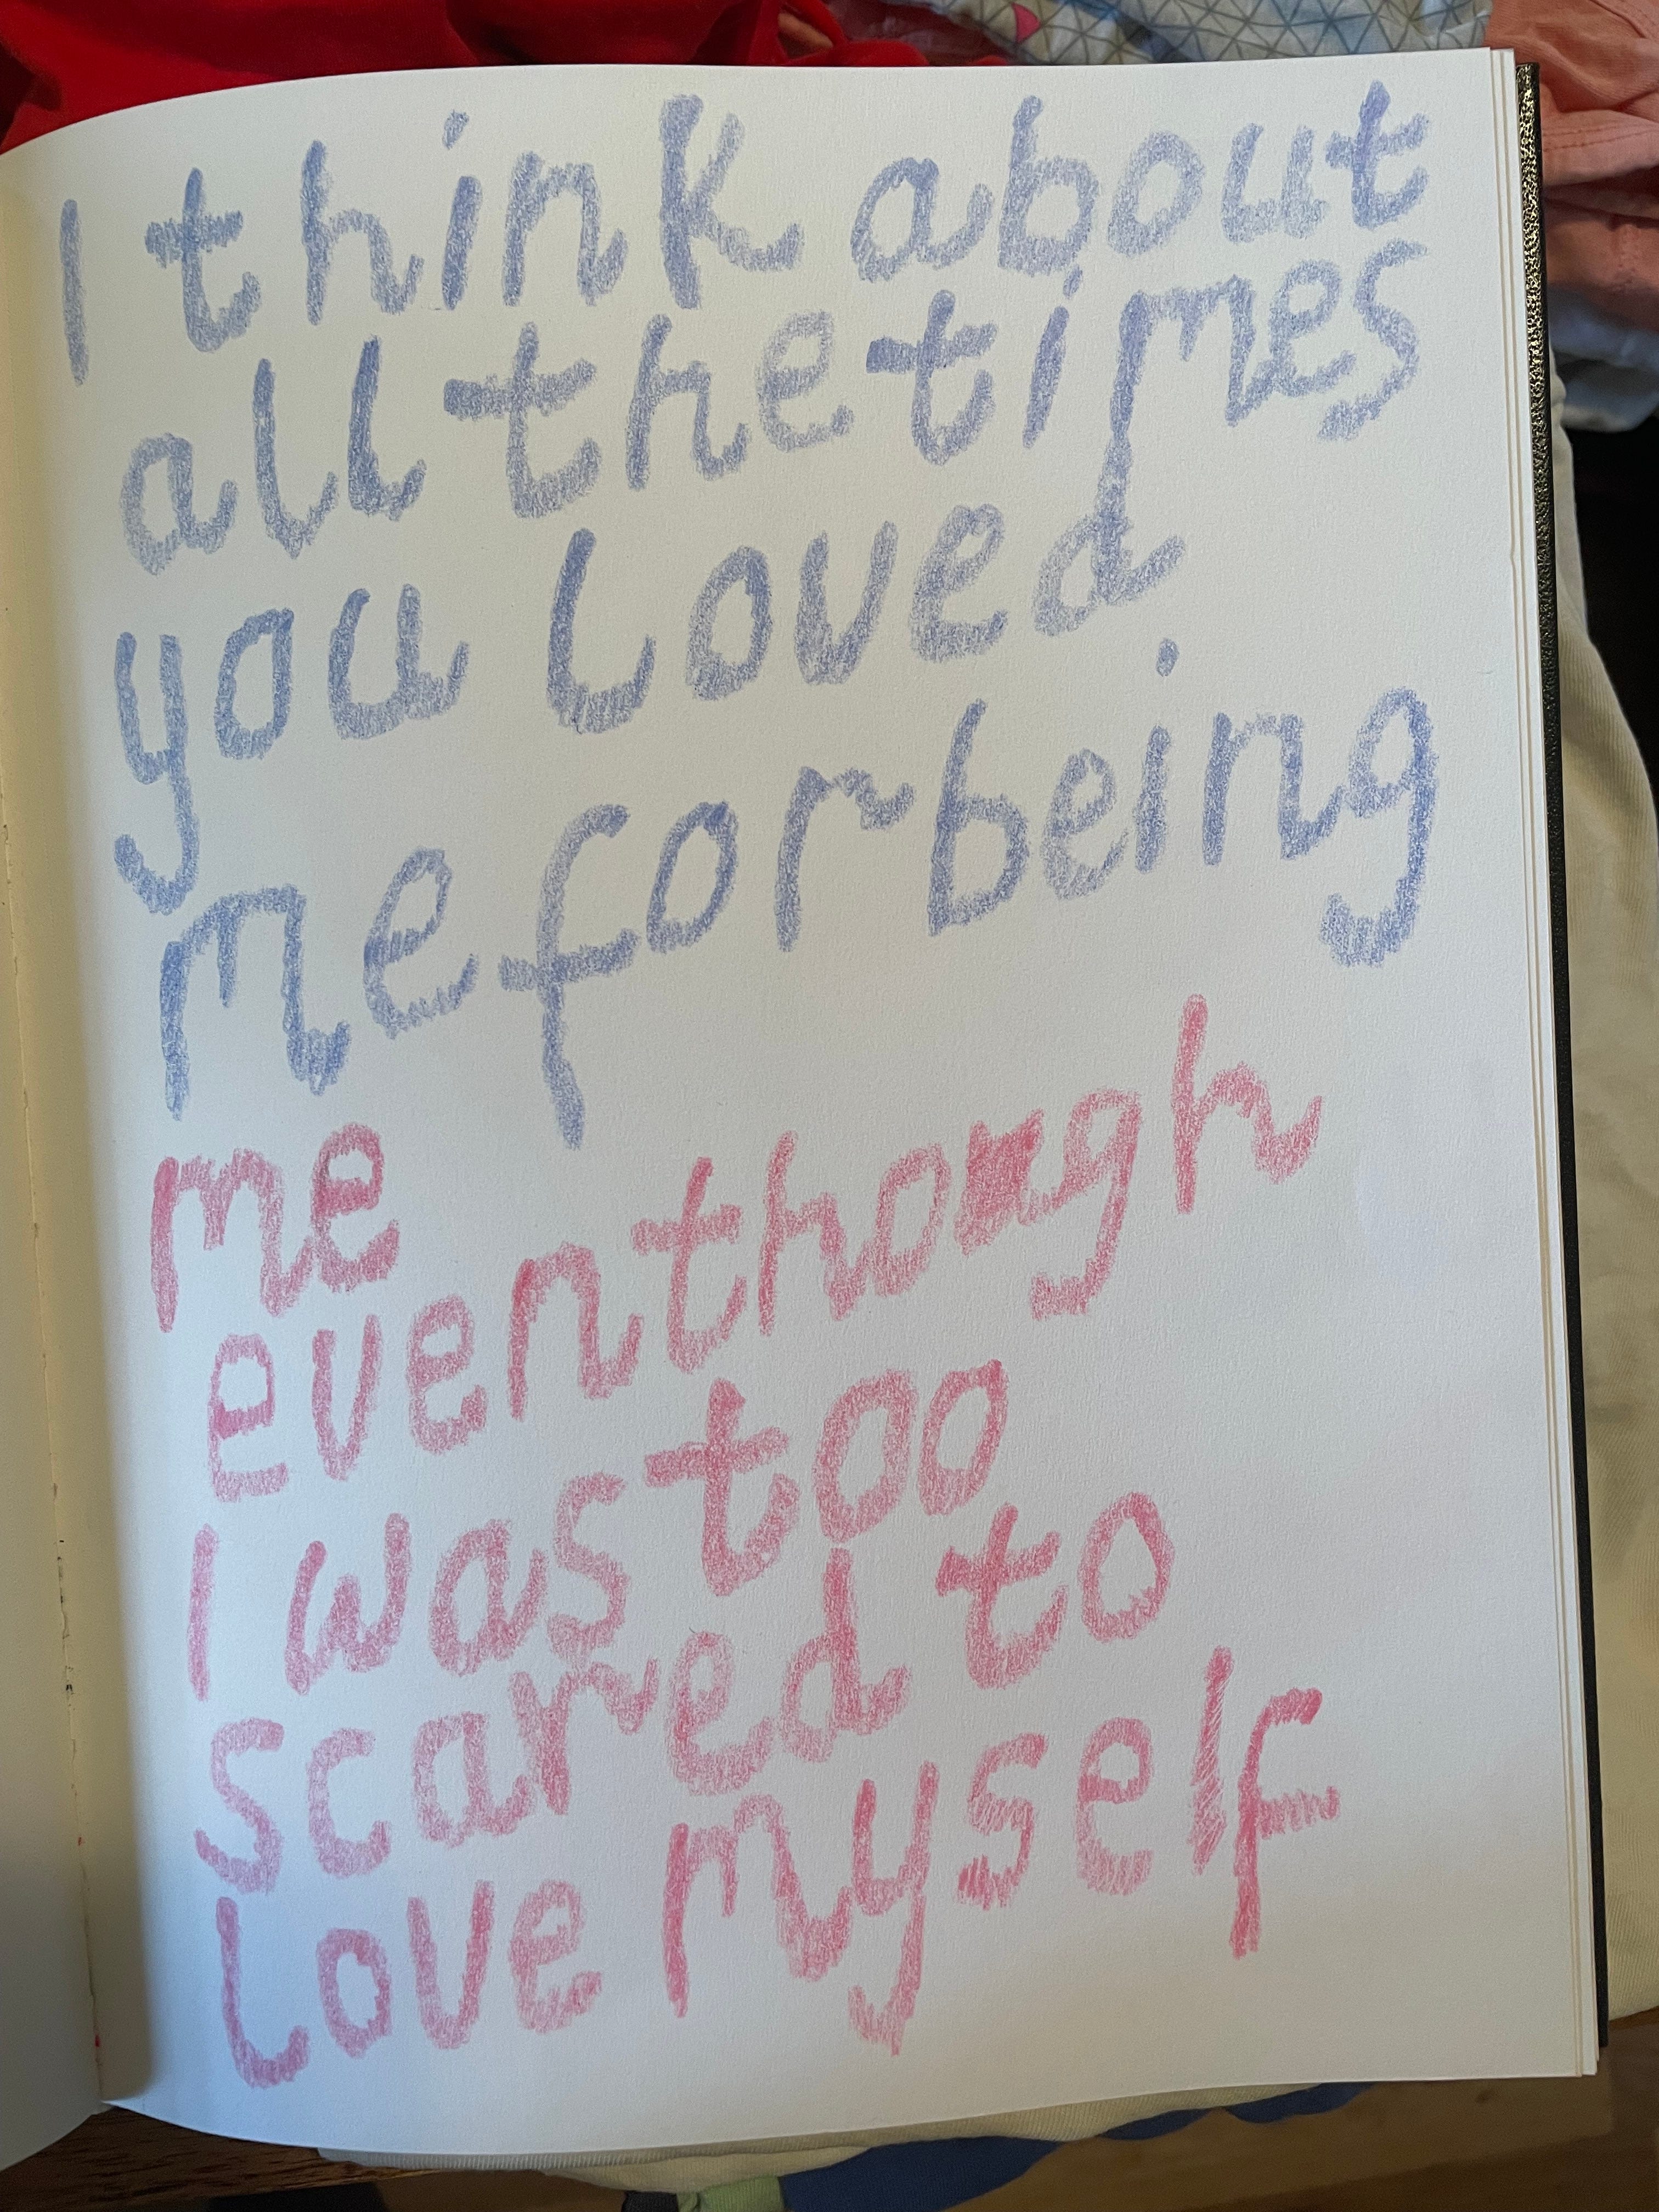 I think about
all the times
you loved
me for being
me
even though
I was too
scared to
love myself